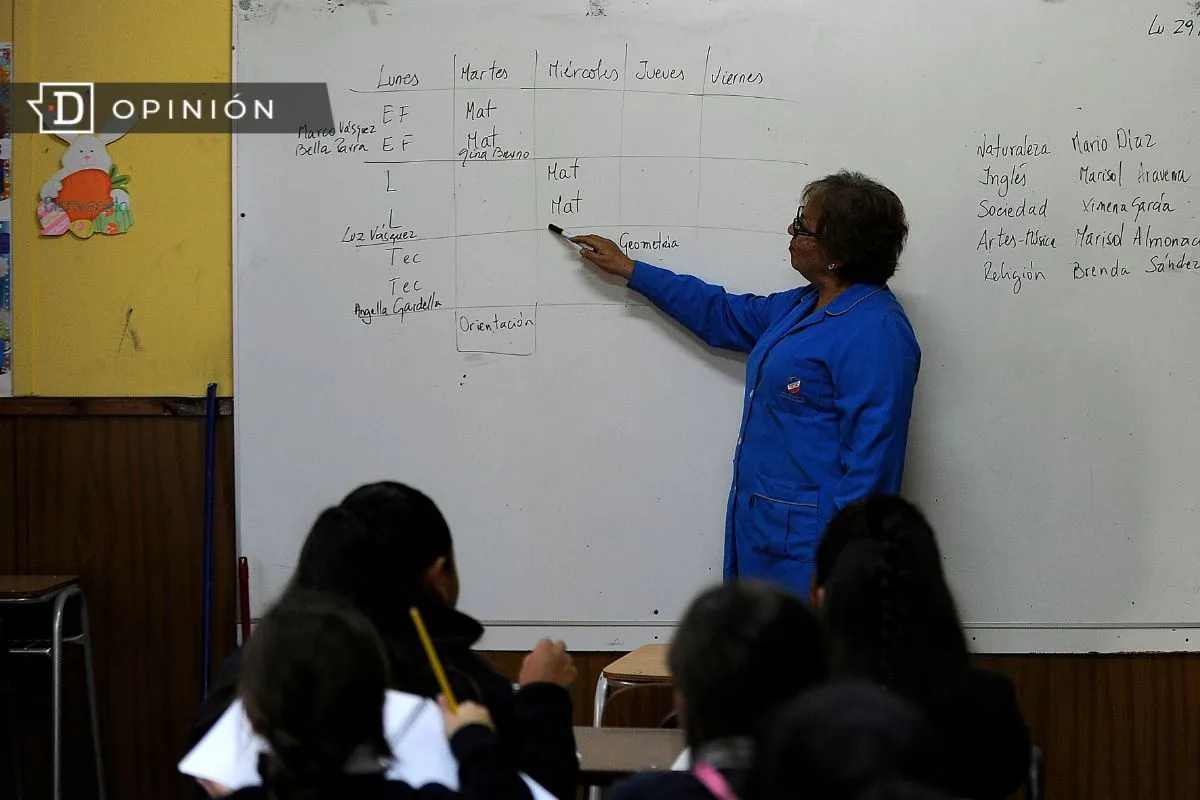 Lu 29
D OPINIÓN
Lunes Martes Miércoles Jueves Viernes
EF Mat
Marco Vásquez
Bella Parra EF Mat
Gina Bruno
L Mat
L Mat
Luz Vásquez
Geometría
Tec
Tec
Angella Gardella
Orientación
Bienvenido
Naturaleza Mario Díaz
Inglés Marisol Aravena
Sociedad Ximena García
Artes-Música Marisol Almonac
Religión Brenda Sández